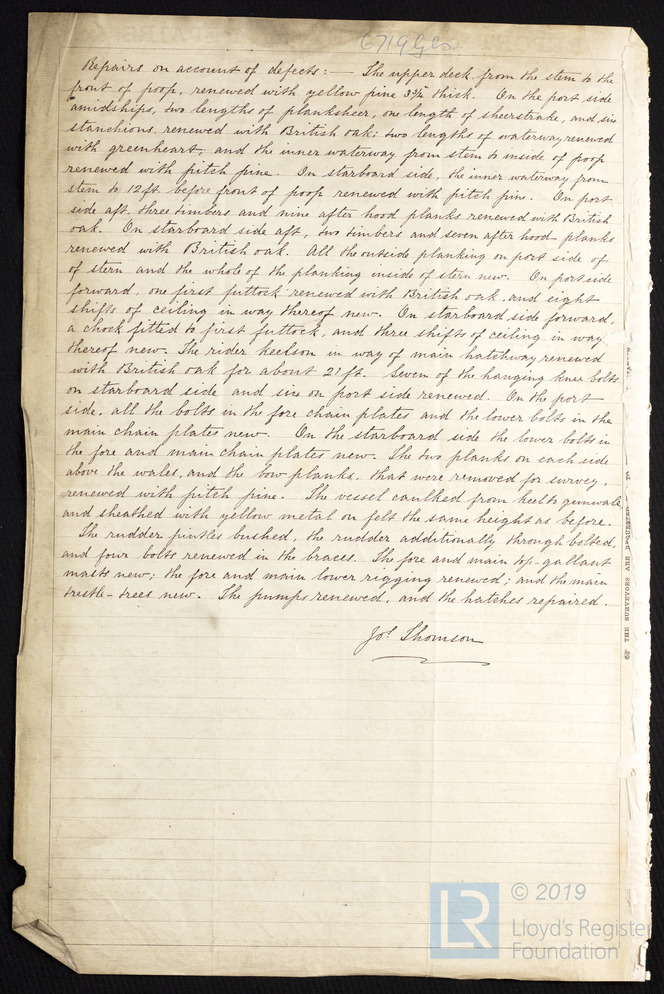 6719 Gls
Repairs on account of defects:— The upper deck from the stem to the
front of poop, renewed with yellow pine 3½ thick. On the port side
amidships, two lengths of planksheer, one length of sheerstrake, and six
stanchions, renewed with British oak; two lengths of waterway renewed
with greenheart; and the inner waterway from stem to inside of poop
renewed with pitch pine. On starboard side, the inner waterway from
stem to 12ft. before front of poop renewed with pitch pine. On port
side aft, three timbers and nine after hood planks renewed with British
oak. On starboard side aft, two timbers and seven after hood planks
renewed with British oak. All the outside planking on port side of
of stern and the whole of the planking inside of stern new. On port side
forward, one first futtock renewed with British oak, and eight
shifts of ceiling in way thereof new. On starboard side forward,
a chock fitted to first futtock, and three shifts of ceiling in way
thereof new. The rider keelson in way of main hatchway renewed
with British oak for about 21ft. Seven of the hanging knee bolts
on starboard side and six on port side renewed. On the port
side, all the bolts in the fore chain plates and the lower bolts in the
main chain plates new. On the starboard side the lower bolts in
the fore and main chain plates new. The two planks on each side
above the wales, and the bow planks, that were removed for survey,
renewed with pitch pine. The vessel caulked from keel to gunwale
and sheathed with yellow metal on felt the same height as before.
The rudder pintles bushed, the rudder additionally through bolted,
and four bolts renewed in the braces. The fore and main top-gallant
masts new; the fore and main lower rigging renewed; and the main
trestle-trees new. The pumps renewed, and the hatches repaired.
Jos. Thomson
THE SURVEYORS ARE REQUESTED
© 2019
LR
Lloyd's Register
Foundation